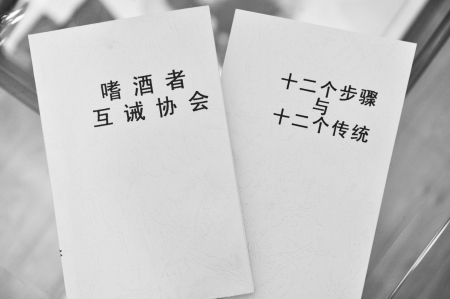 嗜酒者
互诫协会
十二个步骤
与
十二个传统